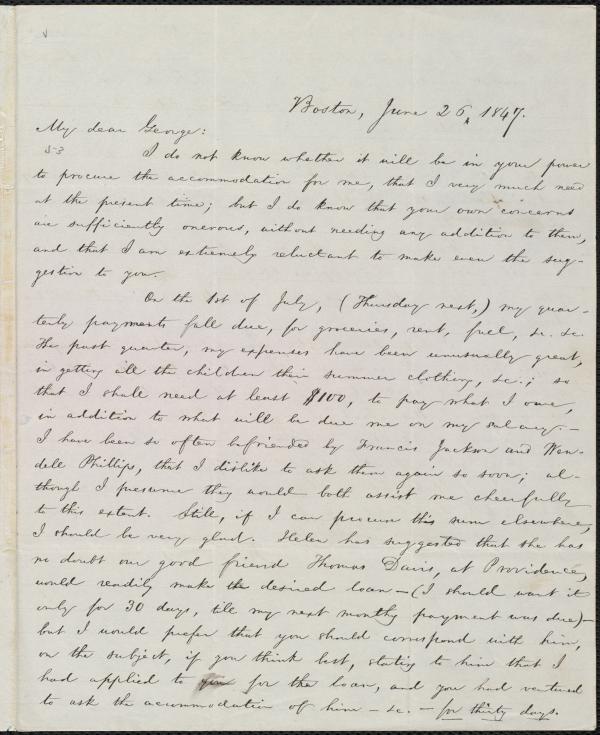 Boston, June 26, 1847.
My dear George:
I do not know whether it will be in your power
to procure the accommodation for me, that I very much need
at the present time; but I do know that your own concerns
are sufficiently onerous, without needing any addition to them,
and that I am extremely reluctant to make even the sug-
gestion to you.
On the 1st of July, (Thursday next,) my quar-
terly payments fall due, for groceries, rent, fuel, &c. &c.
The past quarter, my expenses have been unusually great,
in getting all the children their summer clothing, &c.; so
that I shall need at least $100, to pay what I owe,
in addition to what will be due me on my salary.—
I have been so often befriended by Francis Jackson and Wen-
dell Phillips, that I dislike to ask them again so soon; al-
though I presume they would both assist me cheerfully
to this extent. Still, if I can procure this sum elsewhere,
I should be very glad. Helen has suggested that she has
no doubt our good friend Thomas Davis, at Providence,
would readily make the desired loan—(I should want it
only for 30 days, till my next monthly payment was due)—
but I would prefer that you should correspond with him,
on the subject, if you think best, stating to him that I
had applied to you for the loan, and you had ventured
to ask the accommodation of him—&c.—for thirty days.